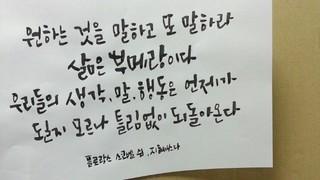 원하는 것을 말하고 또 말하라
삶은 부메랑이다
우리들의 생각, 말, 행동은 언제가
될지 모르나 틀림없이 되돌아온다
플로랑스 스코벨 쉰,